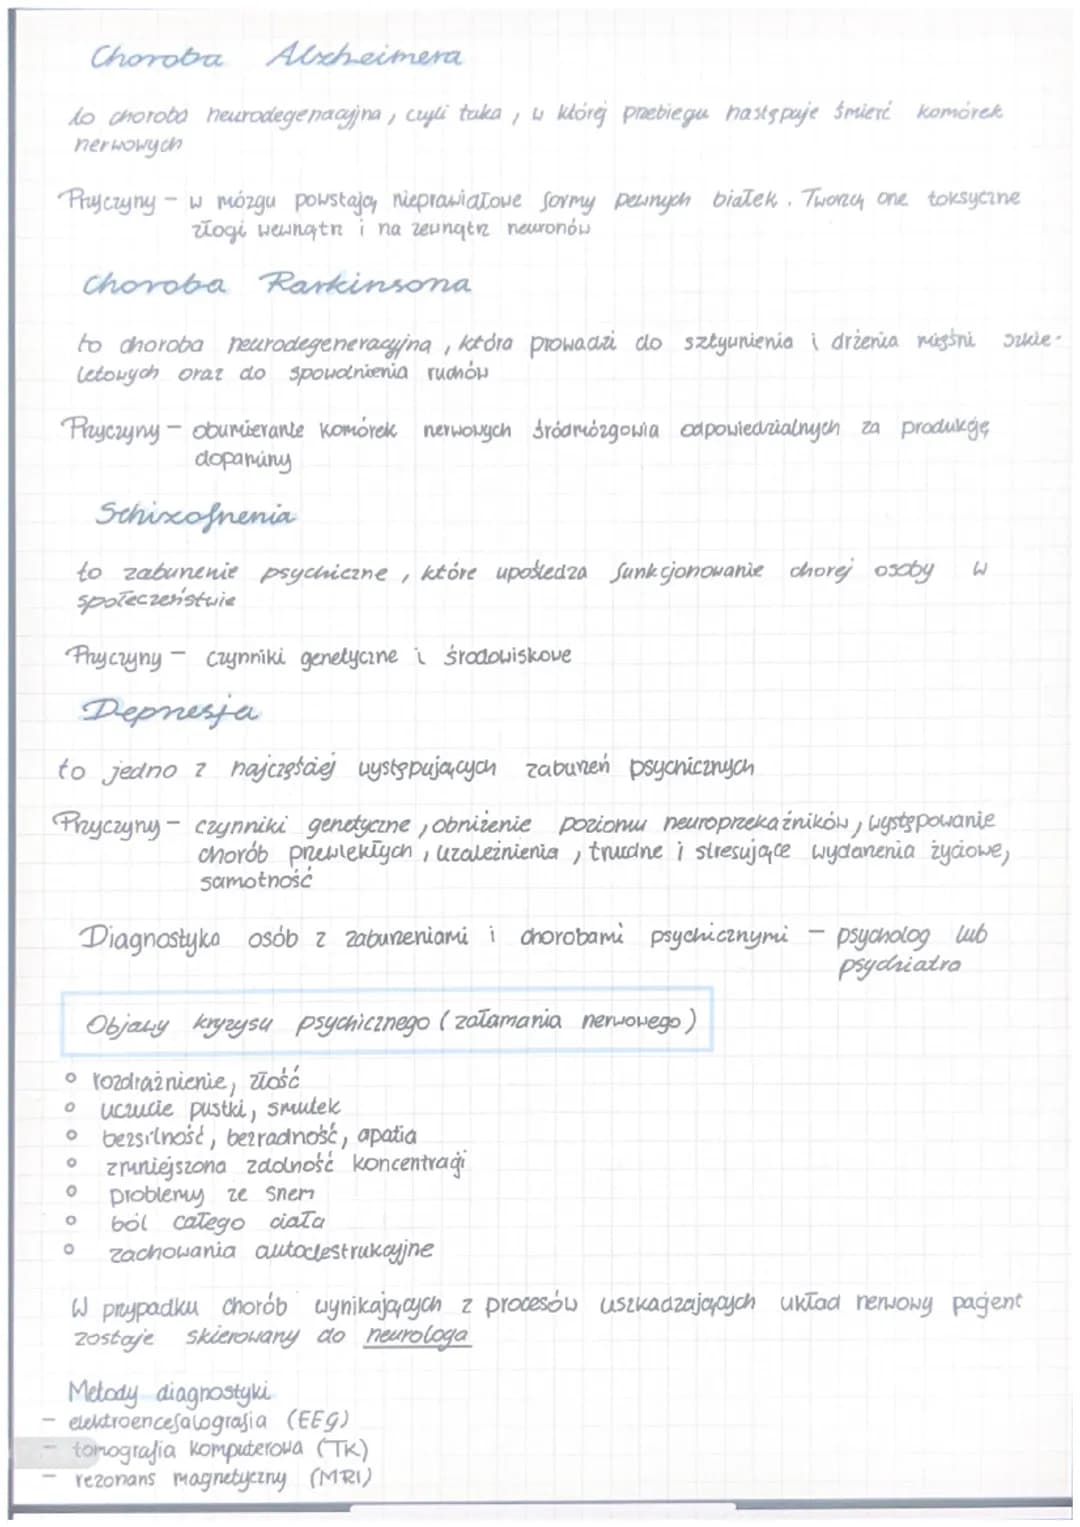 Choroba Alzheimera
to choroba neurodegenacyjna, czyli taka, w której przebiegu następuje śmierć komórek
nerwowych
Przyczyny - w mózgu powstają nieprawidłowe formy pewnych białek. Tworzą one toksyczne
złogi wewnątrz i na zewnątrz neuronów
Choroba Parkinsona
to choroba neurodegeneracyjna, która prowadzi do sztywnienia i drżenia mięśni szkie-
letowych oraz do spowolnienia ruchów
Przyczyny - obumieranie komórek nerwowych śródmózgowia odpowiedzialnych za produkcję
dopaminy
Schizofrenia
to zaburzenie psychiczne, które upośledza funkcjonowanie chorej osoby w
społeczeństwie
Przyczyny - czynniki genetyczne i środowiskowe
Depresja
to jedno z najczęściej występujących zaburzeń psychicznych
Przyczyny - czynniki genetyczne, obniżenie poziomu neuroprzekaźników, występowanie
chorób przewlekłych, uzależnienia, trudne i stresujące wydarzenia życiowe,
samotność
Diagnostyka osób z zaburzeniami i chorobami psychicznymi - psycholog lub
psychiatra
Objawy kryzysu psychicznego (załamania nerwowego)
° rozdrażnienie, złość
° uczucie pustki, smutek
° bezsilność, bezradność, apatia
° zmniejszona zdolność koncentracji
° problemy ze snem
° ból całego ciała
° zachowania autodestrukcyjne
W przypadku chorób wynikających z procesów uszkadzających układ nerwowy pacjent
zostaje skierowany do neurologa
Metody diagnostyki
- elektroencefalografia (EEG)
- tomografia komputerowa (TK)
- rezonans magnetyczny (MRI)